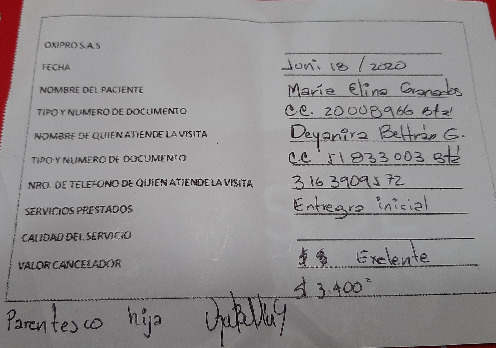 OXIPRO S.A.S
FECHA Juni. 18 / 2020
NOMBRE DEL PACIENTE Maria Elina Granados
TIPO Y NUMERO DE DOCUMENTO C.C. 20008966 Bta
NOMBRE DE QUIEN ATIENDE LA VISITA Deyanira Beltrán G.
TIPO Y NUMERO DE DOCUMENTO CC 51833003 Bta
NRO. DE TELEFONO DE QUIEN ATIENDE LA VISITA 3163909572
SERVICIOS PRESTADOS Entregra inicial
CALIDAD DEL SERVICIO
VALOR CANCELADOR Exelente
$ 3.400
Parentesco hija